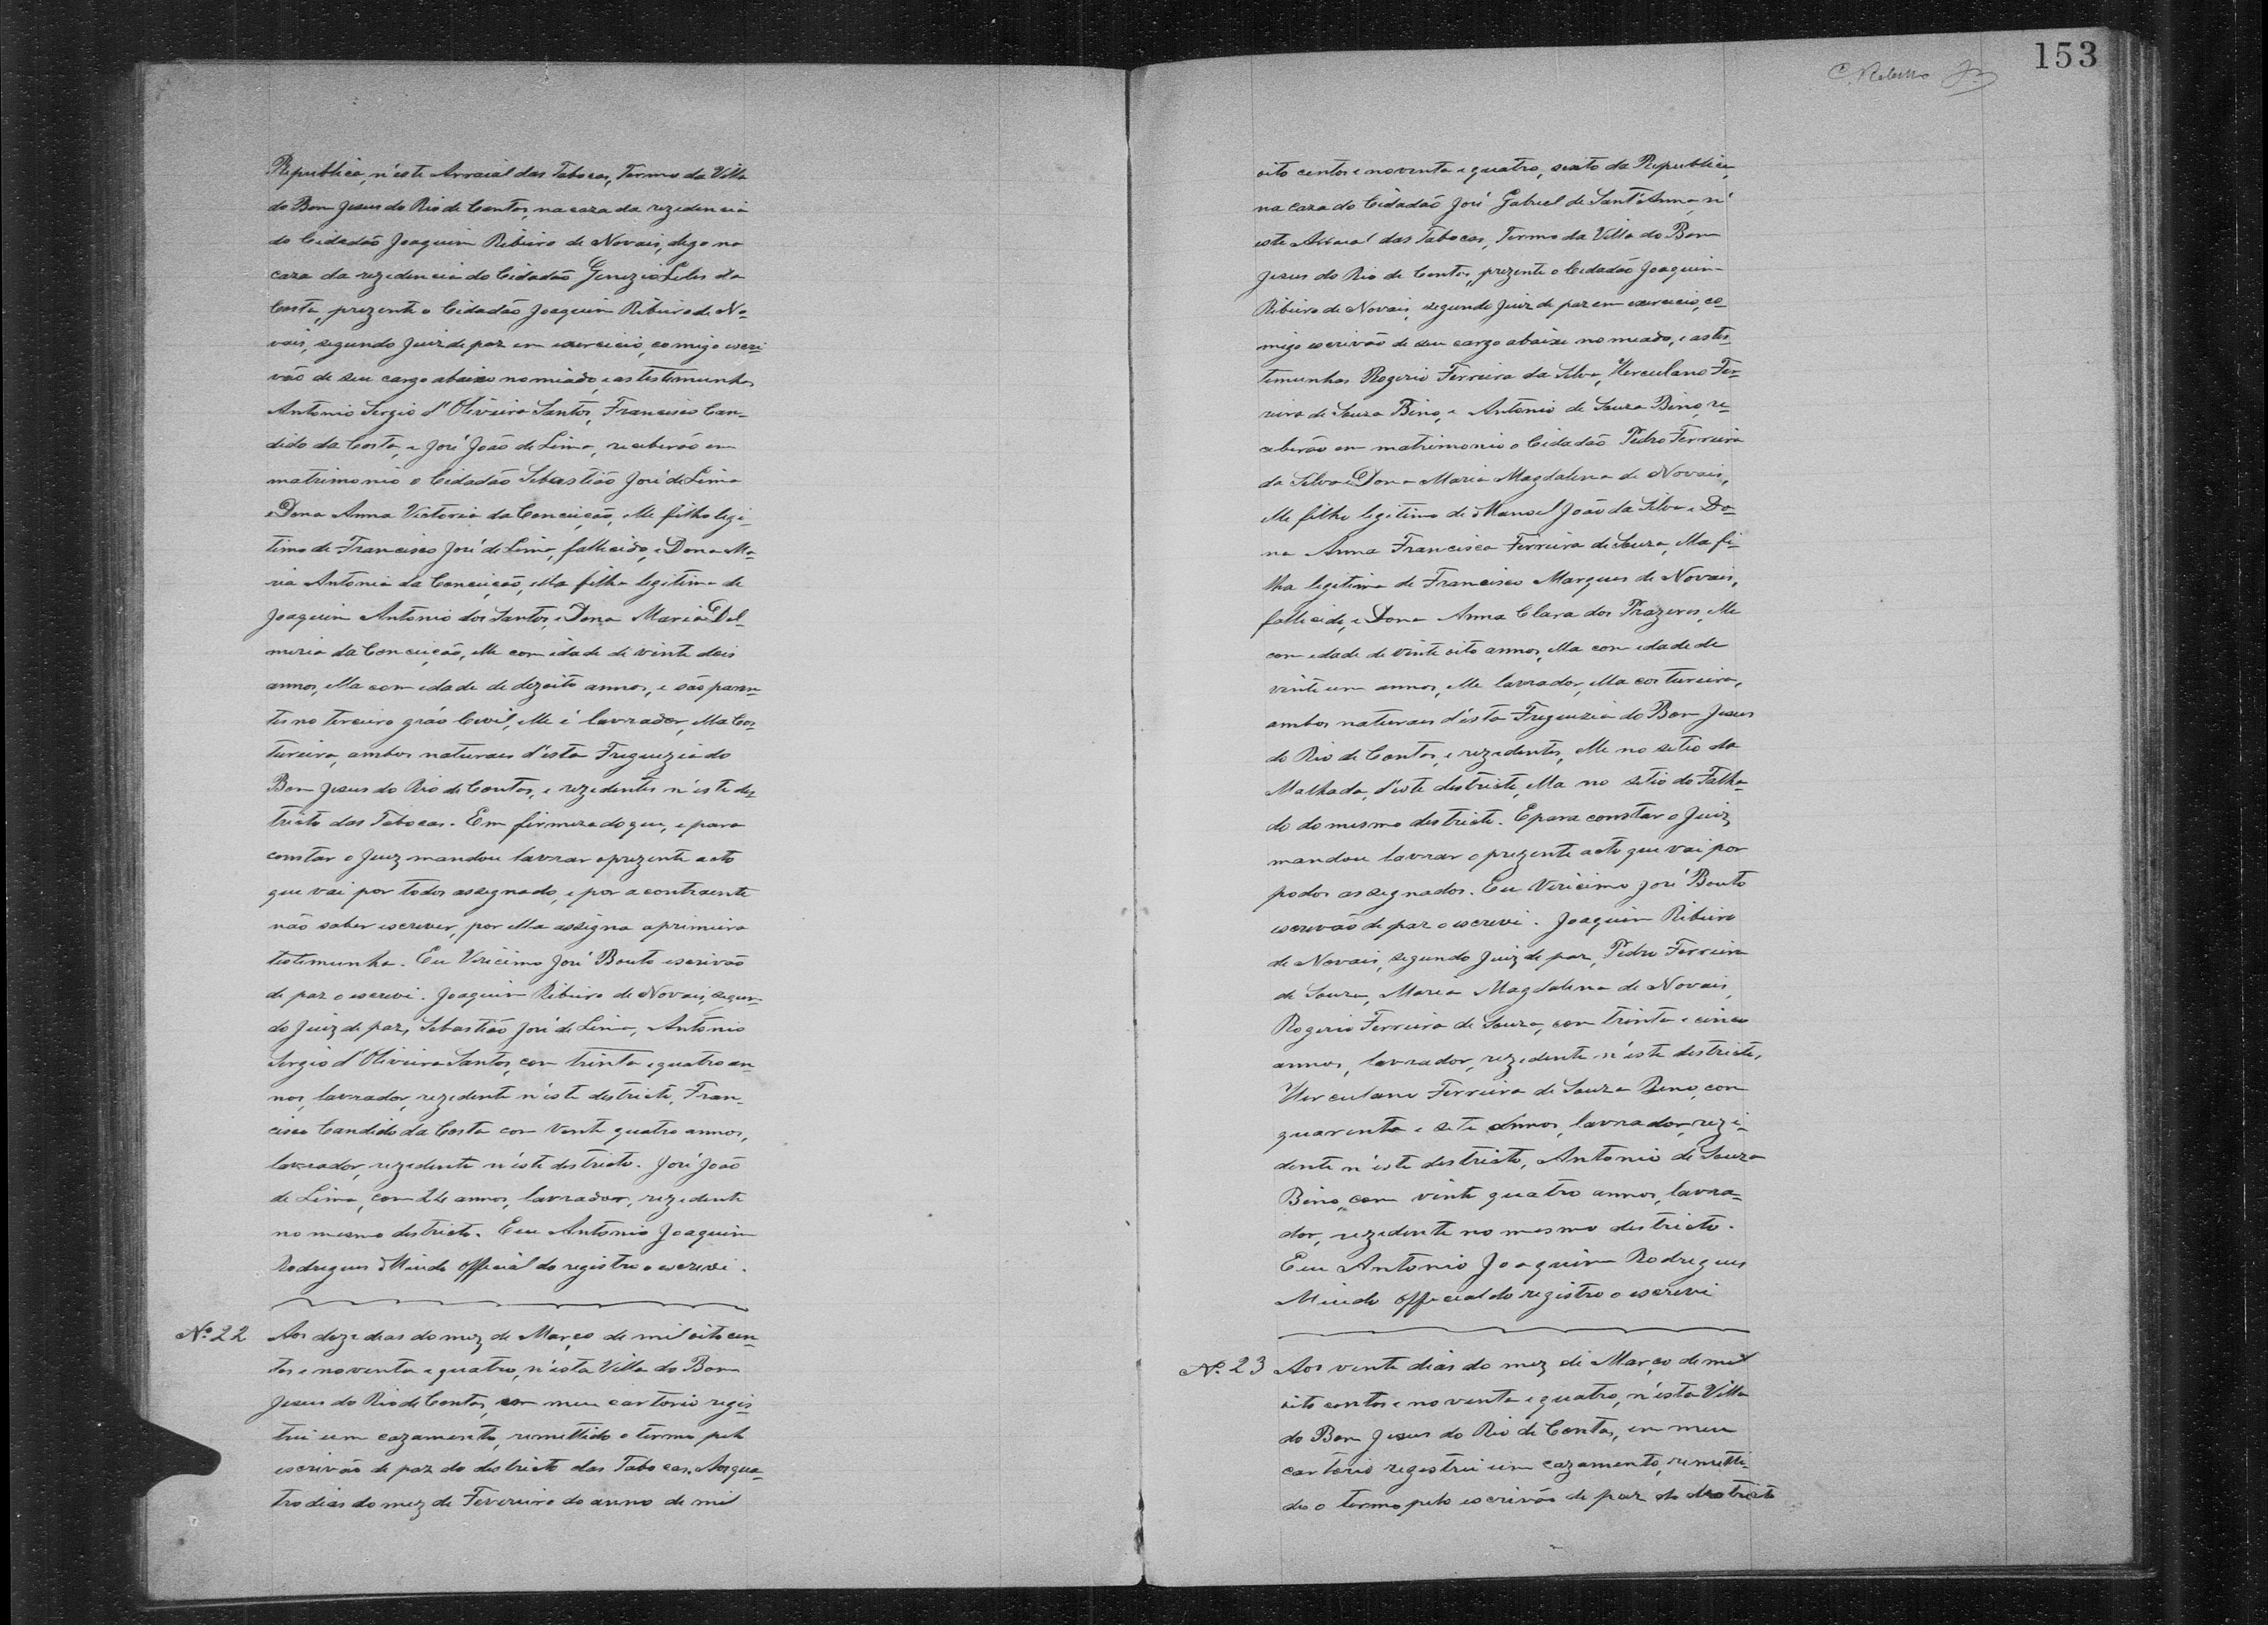 Republica, n'este Arraial das Tabocas, Termo da Villa
do Bom Jesus do Rio de Contas, na caza da rezidencia
do Cidadão Joaquim Ribeiro de Novais, digo na
caza da rezidencia do Cidadão Genezio Leles da
Costa, prezente o Cidadão Joaquim Ribeiro de No-
vais, segundo Juiz de paz em exercicio, comigo escri-
vão de seu cargo abaixo nomiado, e as testemunhas
Antonio Sergio d'Oliveira Santos, Francisco Can-
dido da Costa, e José João de Lima, receberão em
matrimonio o Cidadão Sebastião José de Lima
e Dona Anna Victoria da Conceição, elle filho legi-
timo de Francisco José de Lima, fallecido, e Dona Ma-
ria Antonia da Conceição, ella filha legitima de
Joaquim Antonio dos Santos, e Dona Maria Del-
miria da Conceição, elle com idade de vinte dois
annos, ella com edade de dezoito annos, e são paren-
tes no terceiro gráo Civil, elle é lavrador, ella Cos-
tureira, ambos naturaes d'esta Freguezia do
Bom Jesus do Rio de Contas, e rezedentes n'este des-
tricto das Tabocas. Em firmeza do que, e para
constar o Juiz mandou lavrar o prezente acto
que vai por todos assegnado, e por a contraente
não saber escrever, por ella assigna a primeira
testemunha. Eu Viricimo José Bouto escrivão
de paz o escrevi. Joaquim Ribeiro de Novais, segun-
do Juiz de paz, Sebastião José de Lima, Antonio
Sergio d'Oliveira Santos, com trinta e quatro an-
nos, lavrador, rezedente n'este destricto, Fran-
cisco Candido da Costa com vente quatro annos,
lavrador, rezedente n'este destricto. José João
de Lima, com 24 annos, lavrador, rezedente
no mesmo destricto. Eu Antonio Joaquim
Rodrigues Official do registro o escrevi.
Nº 22 Aos doze dias do mez de Março de mil oito cen-
tos e noventa e quatro, n'esta Villa do Bom
Jesus do Rio de Contas, em meu cartorio regis-
trei um cazamento, remettido o termo pelo
escrivão de paz do destricto das Tabocas. Aos qua-
tro dias do mez de Fevereiro do anno de mil
153
oito centos e noventa e quatro, sexto da Republica,
na caza do Cidadão José Gabriel de Sant'Anna, n'
este Arraial das Tabocas, Termo da Villa do Bom
Jesus do Rio de Contas, prezente o Cidadão Joaquim
Ribeiro de Novais, segundo Juiz de paz em exercicio, co-
migo escrivão de seu cargo abaixo nomeado, e as tes-
temunhas Rogerio Ferreira da Silva, Herculano Fer-
reira de Souza Bino, e Antonio de Souza Bino, re-
ceberão em matrimonio o Cidadão Pedro Ferreira
da Silva e Dona Maria Magdalena de Novais,
elle filho legitimo de Manoel João da Silva e Do-
na Anna Francisca Ferreira de Souza, ella fi-
lha legitima de Francisco Marques de Novais,
fallecido, e Dona Anna Clara dos Prazeres, elle
com edade de vinte oito annos, ella com edade de
vinte um annos, elle lavrador, ella costureira,
ambos naturaes d'esta Freguezia do Bom Jesus
do Rio de Contas, e rezedentes, elle no setio da
Malhada, d'este destricto, ella no sitio do Talha-
do do mesmo destricto. E para constar o Juiz
mandou lavrar o prezente acto que vai por
podos assegnados. Eu Viricimo José Bouto
escrivão de paz o escrevi. Joaquim Ribeiro
de Novais, segundo Juiz de paz, Pedro Ferreira
de Souza, Maria Magdalena de Novais,
Rogerio Ferreira de Souza, com trinta e cinco
annos, lavrador, rezedente n'este destricto,
Herculano Ferreira de Souza Bino, com
quarenta e sete annos, lavrador, reze-
dente n'este destricto, Antonio de Souza
Bino, com vinte quatro annos, lavra-
dor, rezedente no mesmo destricto.
Eu Antonio Joaquim Rodrigues
official do registro o escrevi
Nº 23 Aos vente dias do mez de Março de mil
oito centos e noventa e quatro, n'esta Villa
do Bom Jesus do Rio de Contas, em meu
cartorio registrei um cazamento, remetti-
do o termo pelo escrivão de paz do destricto